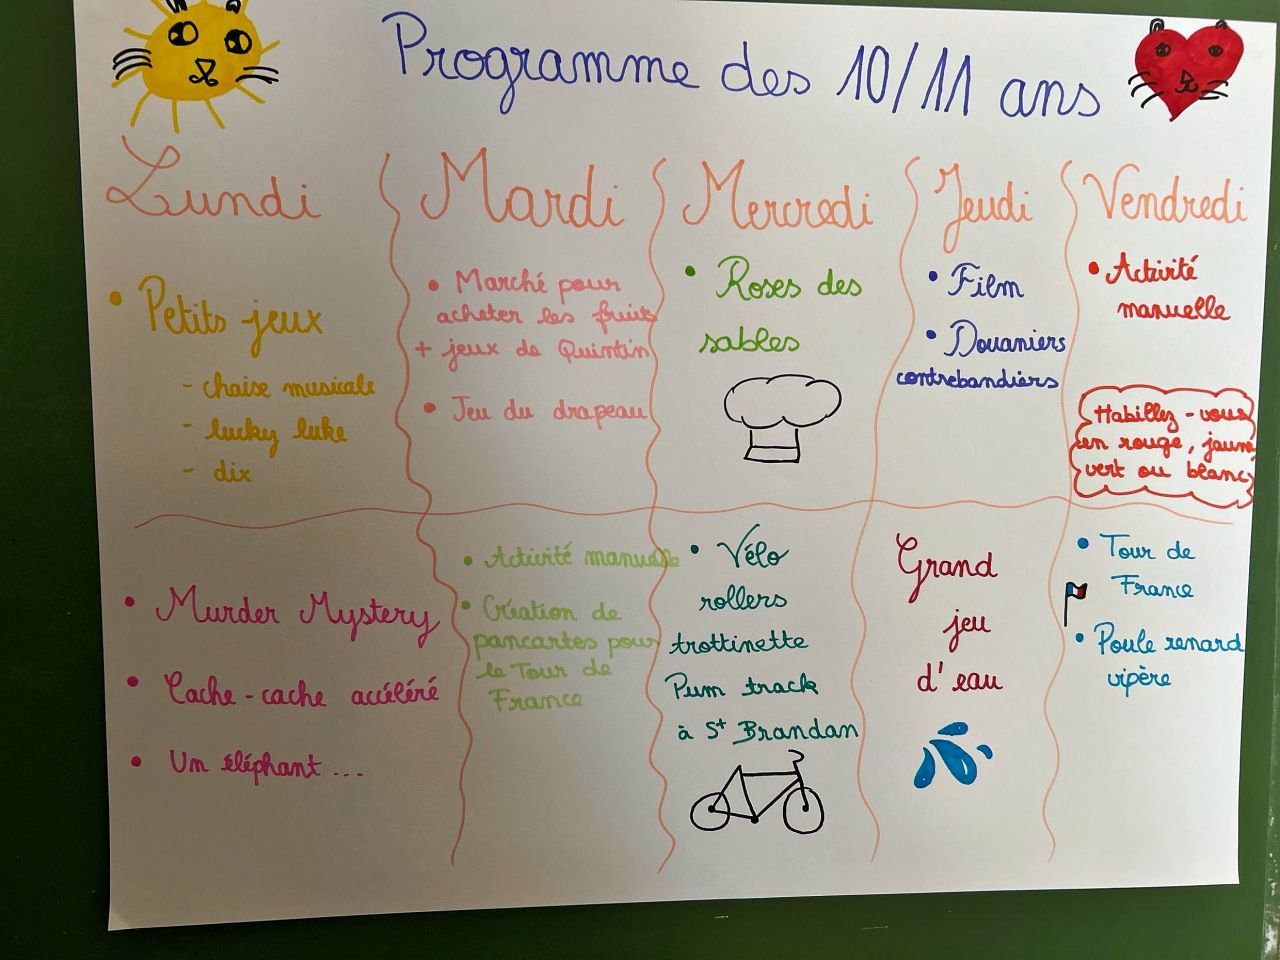 Programme des 10/11 ans
Lundi
• Petits jeux
- chaise musicale
- lucky luke
- dix
• Murder Mystery
• Cache-cache accéléré
• Un éléphant ...
Mardi
• Marché pour
acheter les fruits
+ jeux de Quintin
• Jeu du drapeau
• Activité manuelle
• Création de
pancartes pour
le Tour de
France
Mercredi
• Roses des
sables
• Vélo
rollers
trottinette
Pum track
à St Brandan
Jeudi
• Film
• Douaniers
contrebandiers
Grand
jeu
d'eau
Vendredi
• Activité
manuelle
Habillez-vous
en rouge, jaune,
vert ou blanc
• Tour de
France
• Poule renard
vipère